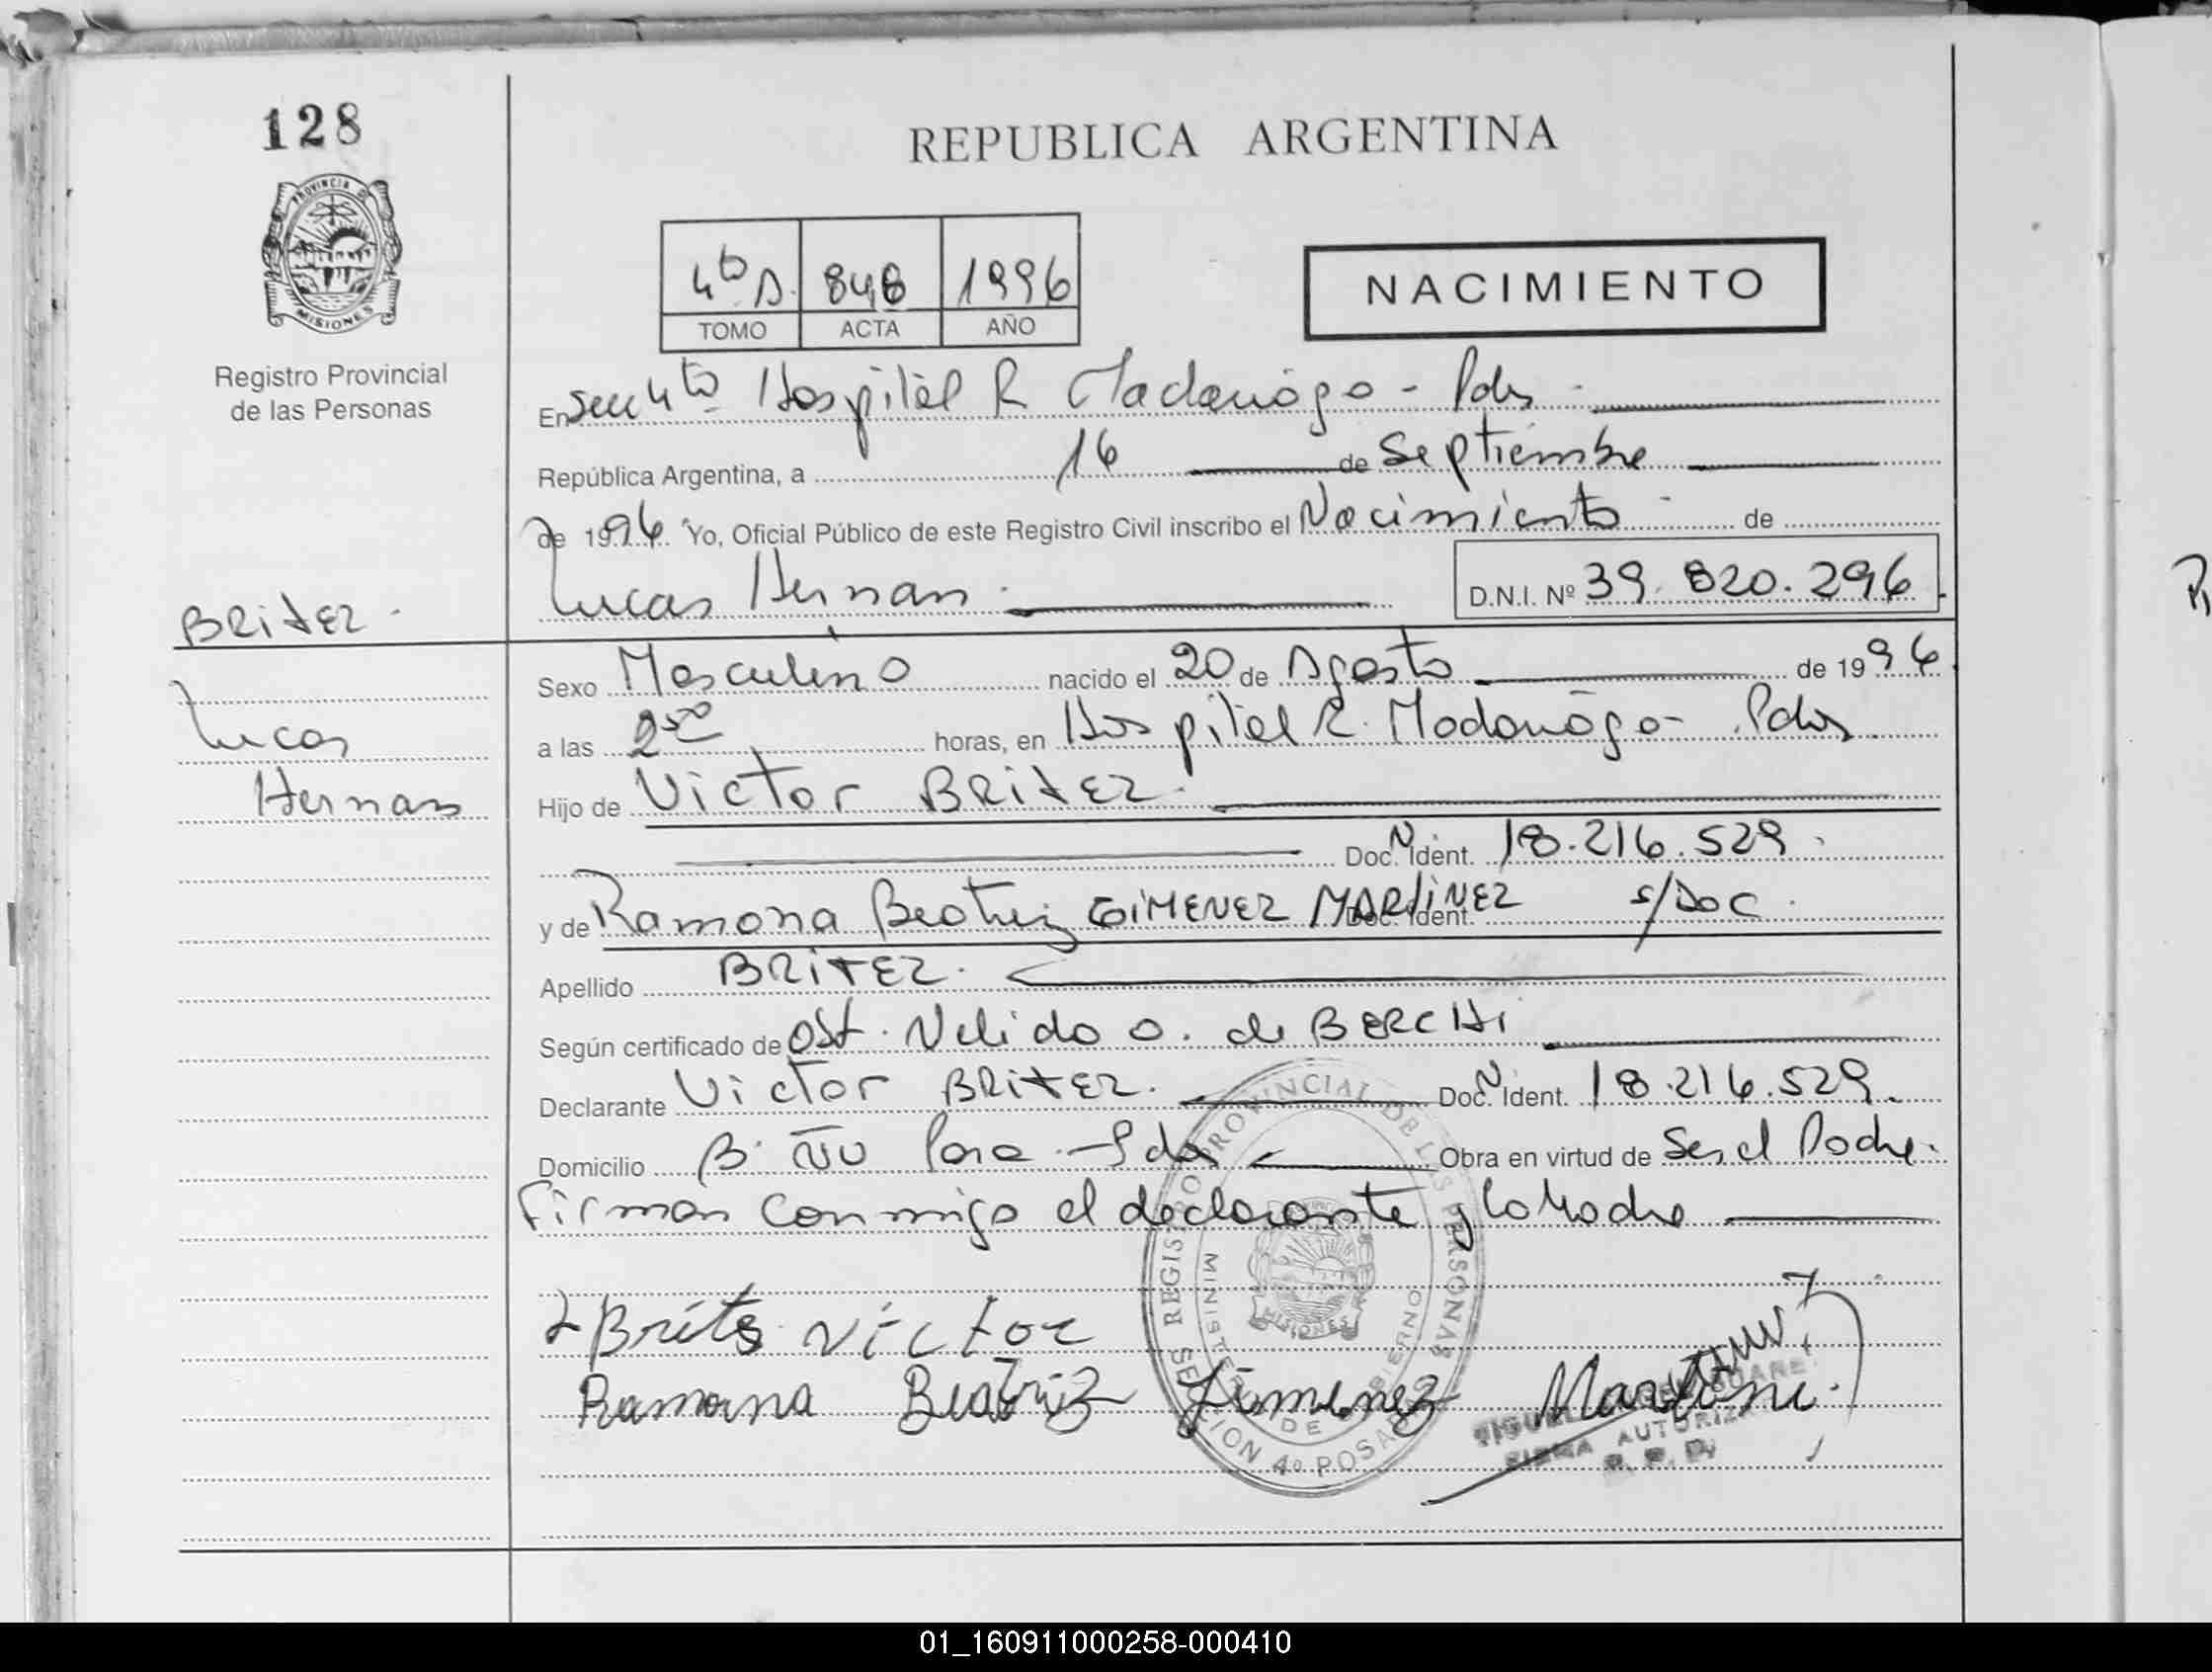 128
REPUBLICA ARGENTINA
PROVINCIA DE
MISIONES
Registro Provincial
de las Personas
4to A. 848 1996
TOMO ACTA AÑO
NACIMIENTO
En Secc 4to Hospital R Madariaga - Pdas -
República Argentina, a 16 de Septiembre
de 1996 Yo, Oficial Público de este Registro Civil inscribo el Nacimiento de
Lucas Hernan. D.N.I. Nº 39.820.296
BRITEZ -
Lucas
Hernan
Sexo Masculino nacido el 20 de Agosto de 1996
a las 2 50 horas, en Hospital R. Madariaga - Pdas
Hijo de Victor BRITEZ.
Doc. N Ident. 18.216.529.
y de Ramona Beatriz GIMENEZ MARTINEZ Doc. Ident. s/Doc.
Apellido BRITEZ.
Según certificado de Obst. Nelida O. de BERCHI
Declarante Victor BRITEZ. Doc. N Ident. 18.216.529.
Domicilio B. ÑU Pora - Pdas Obra en virtud de Ser el Padre.
Firman conmigo el declarante y la Madre
Victor
Ramona Beatriz Jimenez
REGISTRO PROVINCIAL DE LAS PERSONAS
MINISTERIO DE GOBIERNO
MISIONES
SECCION 4º POSADAS
FIRMA AUTORIZADA
R. P. P.
01_160911000258-000410